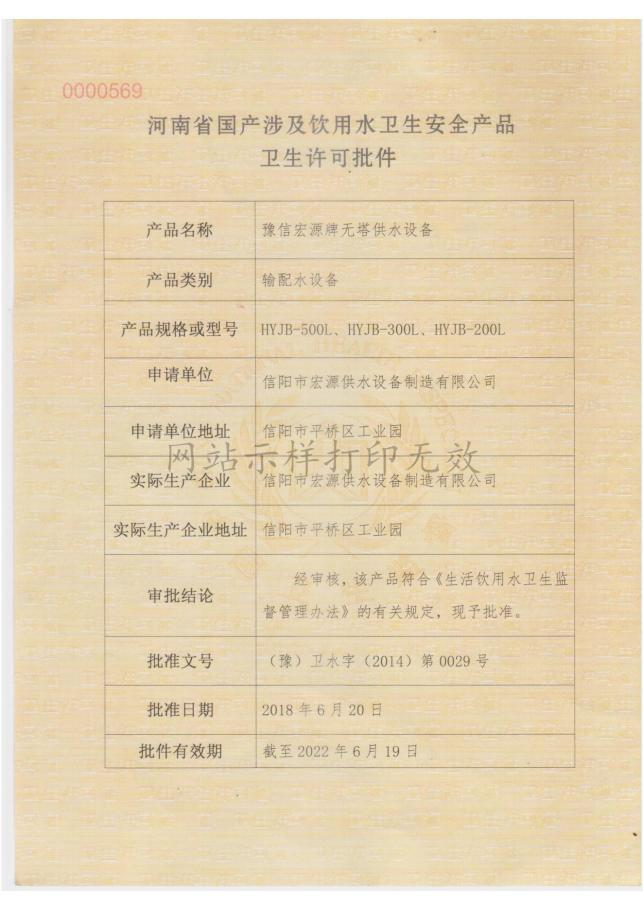 0000569
河南省国产涉及饮用水卫生安全产品
卫生许可批件
产品名称 豫信宏源牌无塔供水设备
产品类别 输配水设备
产品规格或型号 HYJB-500L、HYJB-300L、HYJB-200L
申请单位 信阳市宏源供水设备制造有限公司
申请单位地址 信阳市平桥区工业园
网站示样打印无效
实际生产企业 信阳市宏源供水设备制造有限公司
实际生产企业地址 信阳市平桥区工业园
审批结论 经审核，该产品符合《生活饮用水卫生监
督管理办法》的有关规定，现予批准。
批准文号 （豫）卫水字（2014）第0029号
批准日期 2018年6月20日
批件有效期 截至2022年6月19日